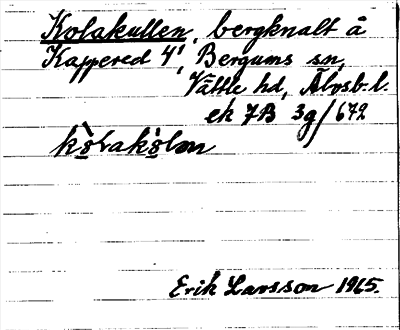 Kolakullen, bergknalt å
Kappered 4¹, Bergums sn,
Vättle hd, Älvsb. l.
ek 7B 3g/672
kò̤lakò̤lən
Erik Larsson 1965.